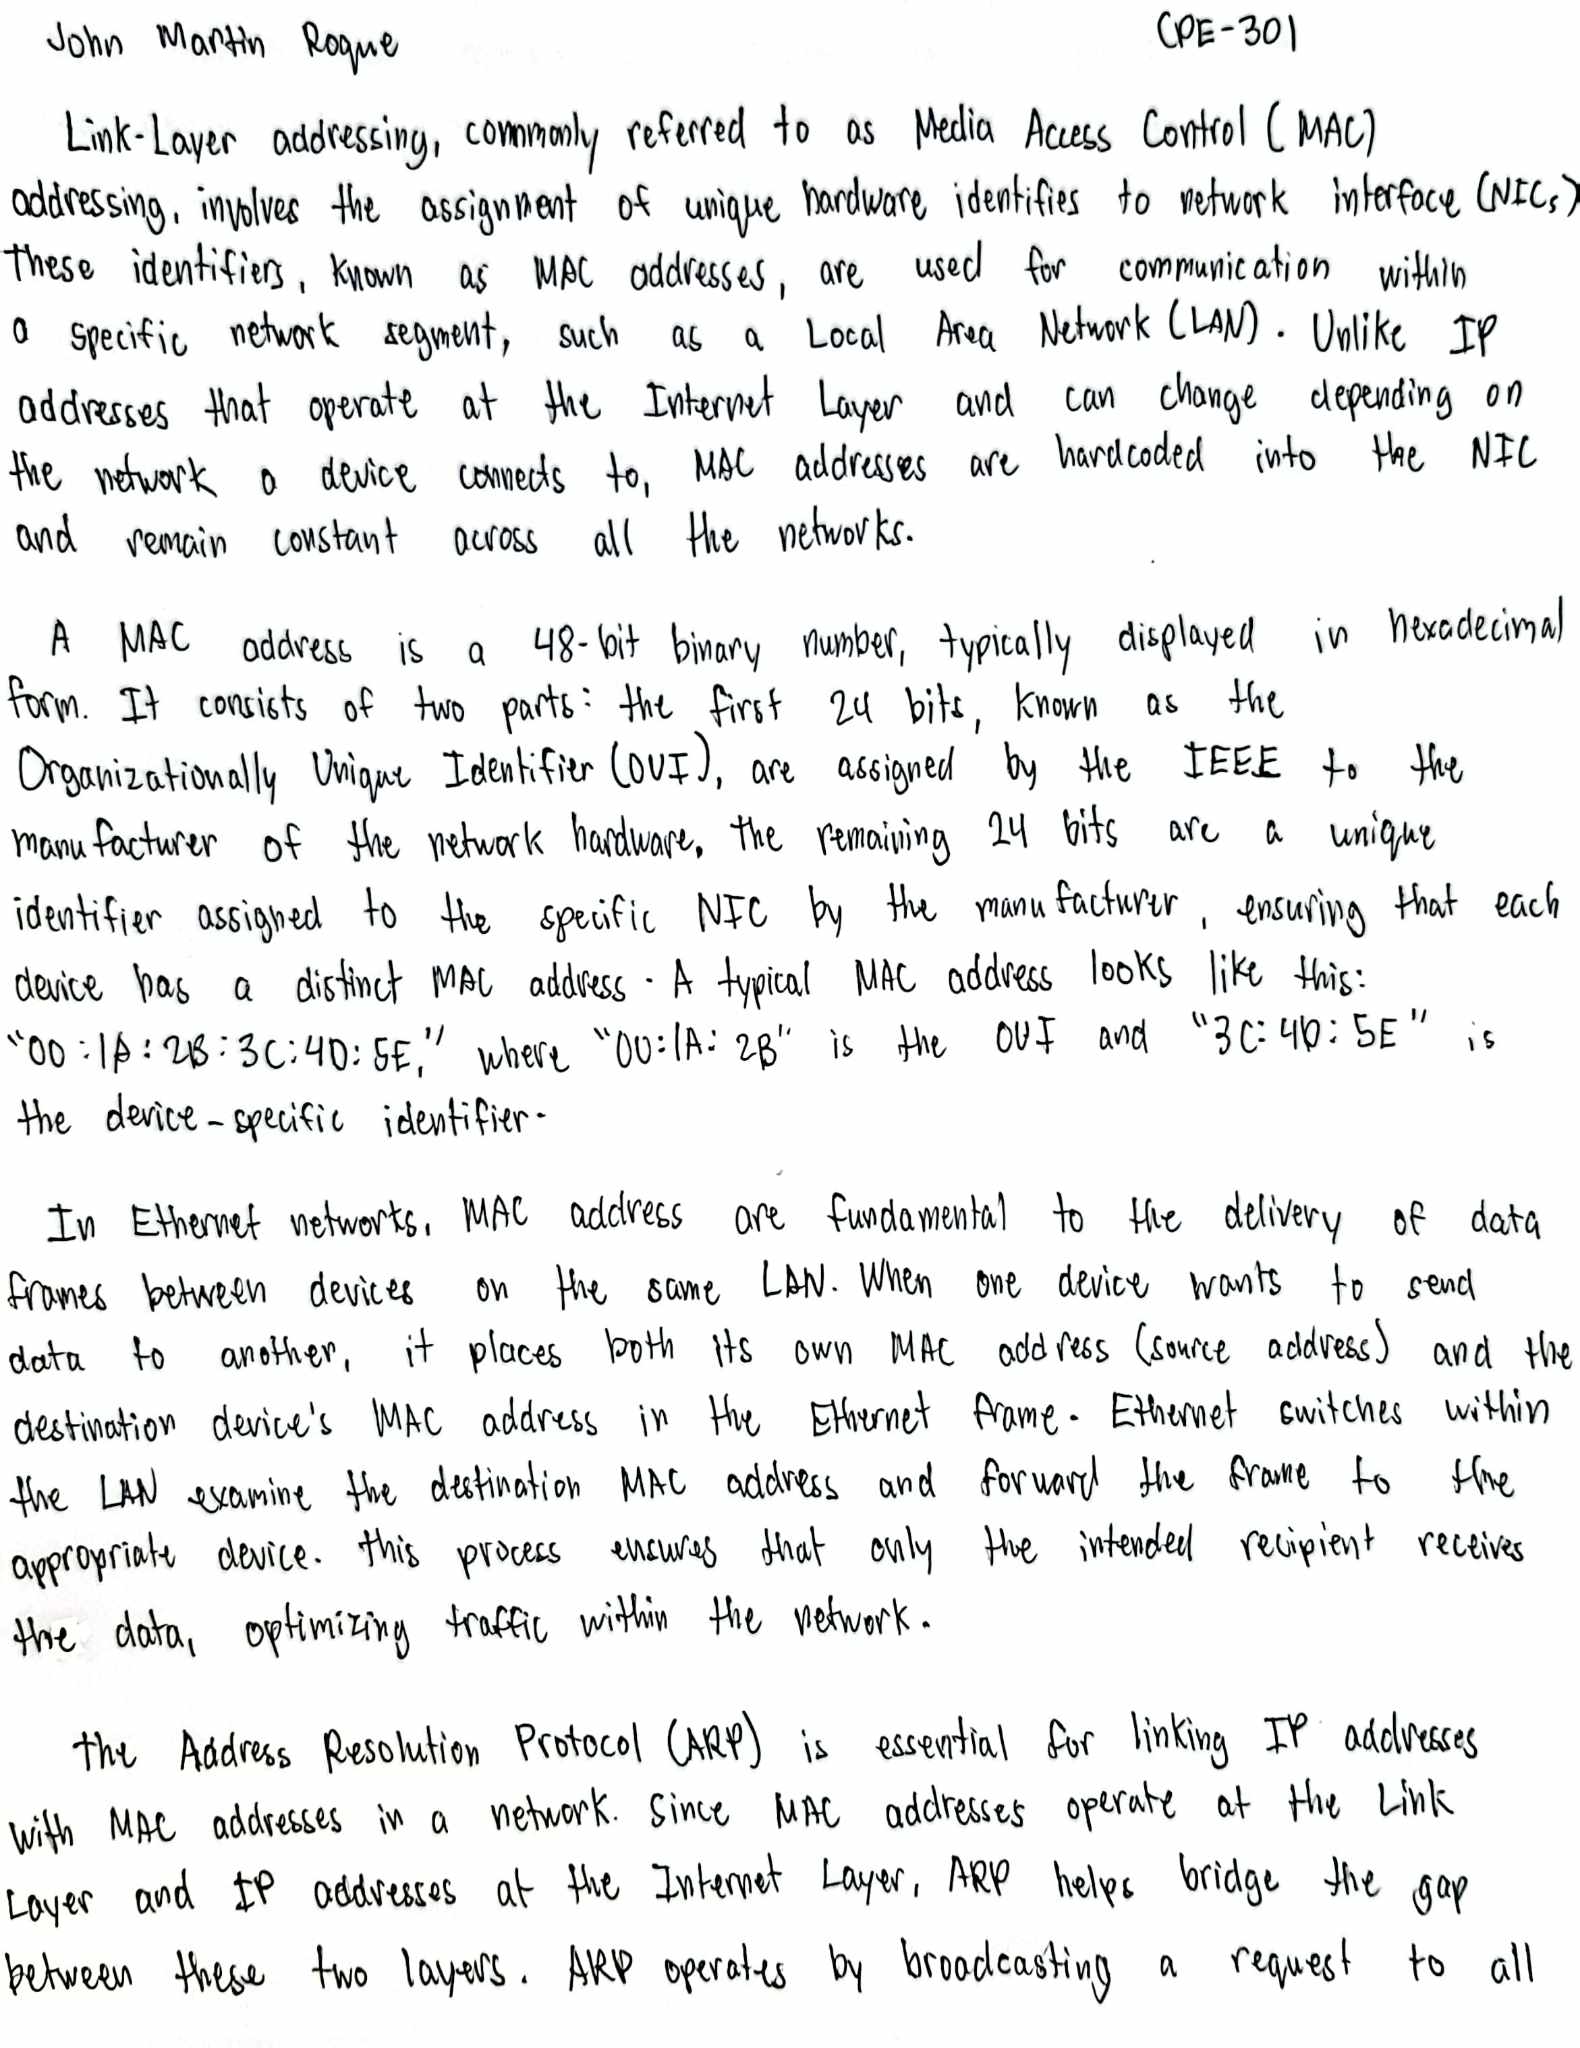 John Martin Roque CPE-301
Link-Layer addressing, commonly referred to as Media Access Control (MAC)
addressing, involves the assignment of unique hardware identifies to network interface (NICs)
These identifiers, known as MAC addresses, are used for communication within
a specific network segment, such as a Local Area Network (LAN). Unlike IP
addresses that operate at the Internet Layer and can change depending on
the network a device connects to, MAC addresses are hardcoded into the NIC
and remain constant across all the networks.
A MAC address is a 48-bit binary number, typically displayed in hexadecimal
form. It consists of two parts: the first 24 bits, known as the
Organizationally Unique Identifier (OUI), are assigned by the IEEE to the
manufacturer of the network hardware, the remaining 24 bits are a unique
identifier assigned to the specific NIC by the manufacturer, ensuring that each
device has a distinct MAC address. A typical MAC address looks like this:
"00:1A:2B:3C:4D:5E," where "00:1A:2B" is the OUI and "3C:4D:5E" is
the device-specific identifier.
In Ethernet networks, MAC address are fundamental to the delivery of data
frames between devices on the same LAN. When one device wants to send
data to another, it places both its own MAC address (source address) and the
destination device's MAC address in the Ethernet frame. Ethernet switches within
the LAN examine the destination MAC address and forward the frame to the
appropriate device. this process ensures that only the intended recipient receives
the data, optimizing traffic within the network.
the Address Resolution Protocol (ARP) is essential for linking IP addresses
with MAC addresses in a network. Since MAC addresses operate at the Link
Layer and IP addresses at the Internet Layer, ARP helps bridge the gap
between these two layers. ARP operates by broadcasting a request to all